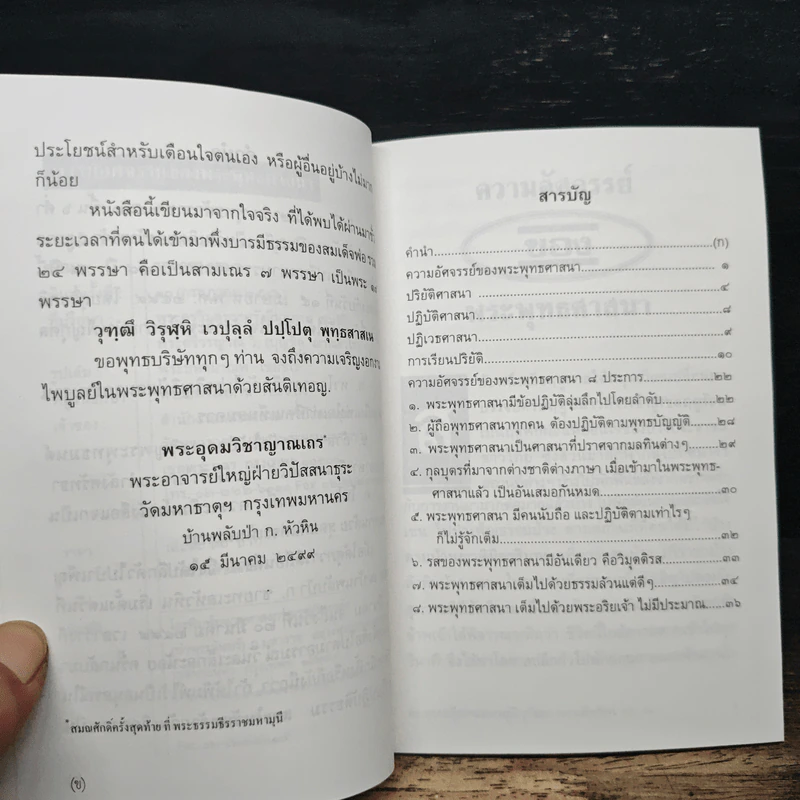 ประโยชน์สำหรับเตือนใจตนเอง หรือผู้อื่นอยู่บ้างไม่มาก
ก็น้อย
หนังสือนี้เขียนมาจากใจจริง ที่ได้พบได้ผ่านมาชั่ว
ระยะเวลาที่ตนได้เข้ามาพึ่งบารมีธรรมของสมเด็จพ่อ รวม
๒๔ พรรษา คือเป็นสามเณร ๗ พรรษา เป็นพระ
พรรษา
วุฑฺฒึ วิรุฬฺหึ เวปุลฺลํ ปปฺโปตุ พุทฺธสาสเน
ขอพุทธบริษัททุกๆ ท่าน จงถึงความเจริญงอกงาม
ไพบูลย์ในพระพุทธศาสนาด้วยสันติเทอญ.
พระอุดมวิชาญาณเถร*
พระอาจารย์ใหญ่ฝ่ายวิปัสสนาธุระ
วัดมหาธาตุฯ กรุงเทพมหานคร
บ้านพลับป่า ก. หัวหิน
๑๕ มีนาคม ๒๔๙๙
*สมณศักดิ์ครั้งสุดท้าย ที่ พระธรรมธีรราชมหามุนี
(ข)
สารบัญ
คำนำ...(ก)
ความอัศจรรย์ของพระพุทธศาสนา... ๑
ปริยัติศาสนา ...๔
ปฏิบัติศาสนา...๘
ปฏิเวธศาสนา...๙
การเรียนปริยัติ...๑๐
ความอัศจรรย์ของพระพุทธศาสนา ๘ ประการ...๒๒
๑. พระพุทธศาสนามีข้อปฏิบัติลุ่มลึกไปโดยลำดับ...๒๒
๒. ผู้ถือพุทธศาสนาทุกคน ต้องปฏิบัติตามพุทธบัญญัติ...๒๘
๓. พระพุทธศาสนาเป็นศาสนาที่ปราศจากมลทินต่างๆ...๒๙
๔. กุลบุตรที่มาจากต่างชาติต่างภาษา เมื่อเข้ามาในพระพุทธ-
ศาสนาแล้ว เป็นอันเสมอกันหมด...๓๐
๕. พระพุทธศาสนา มีคนนับถือ และปฏิบัติตามเท่าไรๆ
ก็ไม่รู้จักเต็ม...๓๒
๖. รสของพระพุทธศาสนามีอันเดียว คือวิมุตติรส...๓๓
๗. พระพุทธศาสนาเต็มไปด้วยธรรมล้วนแต่ดีๆ...๓๔
๘. พระพุทธศาสนา เต็มไปด้วยพระอริยเจ้า ไม่มีประมาณ...๓๖